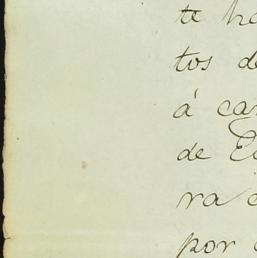 te ha
tos de
á ca
de E
ra
por